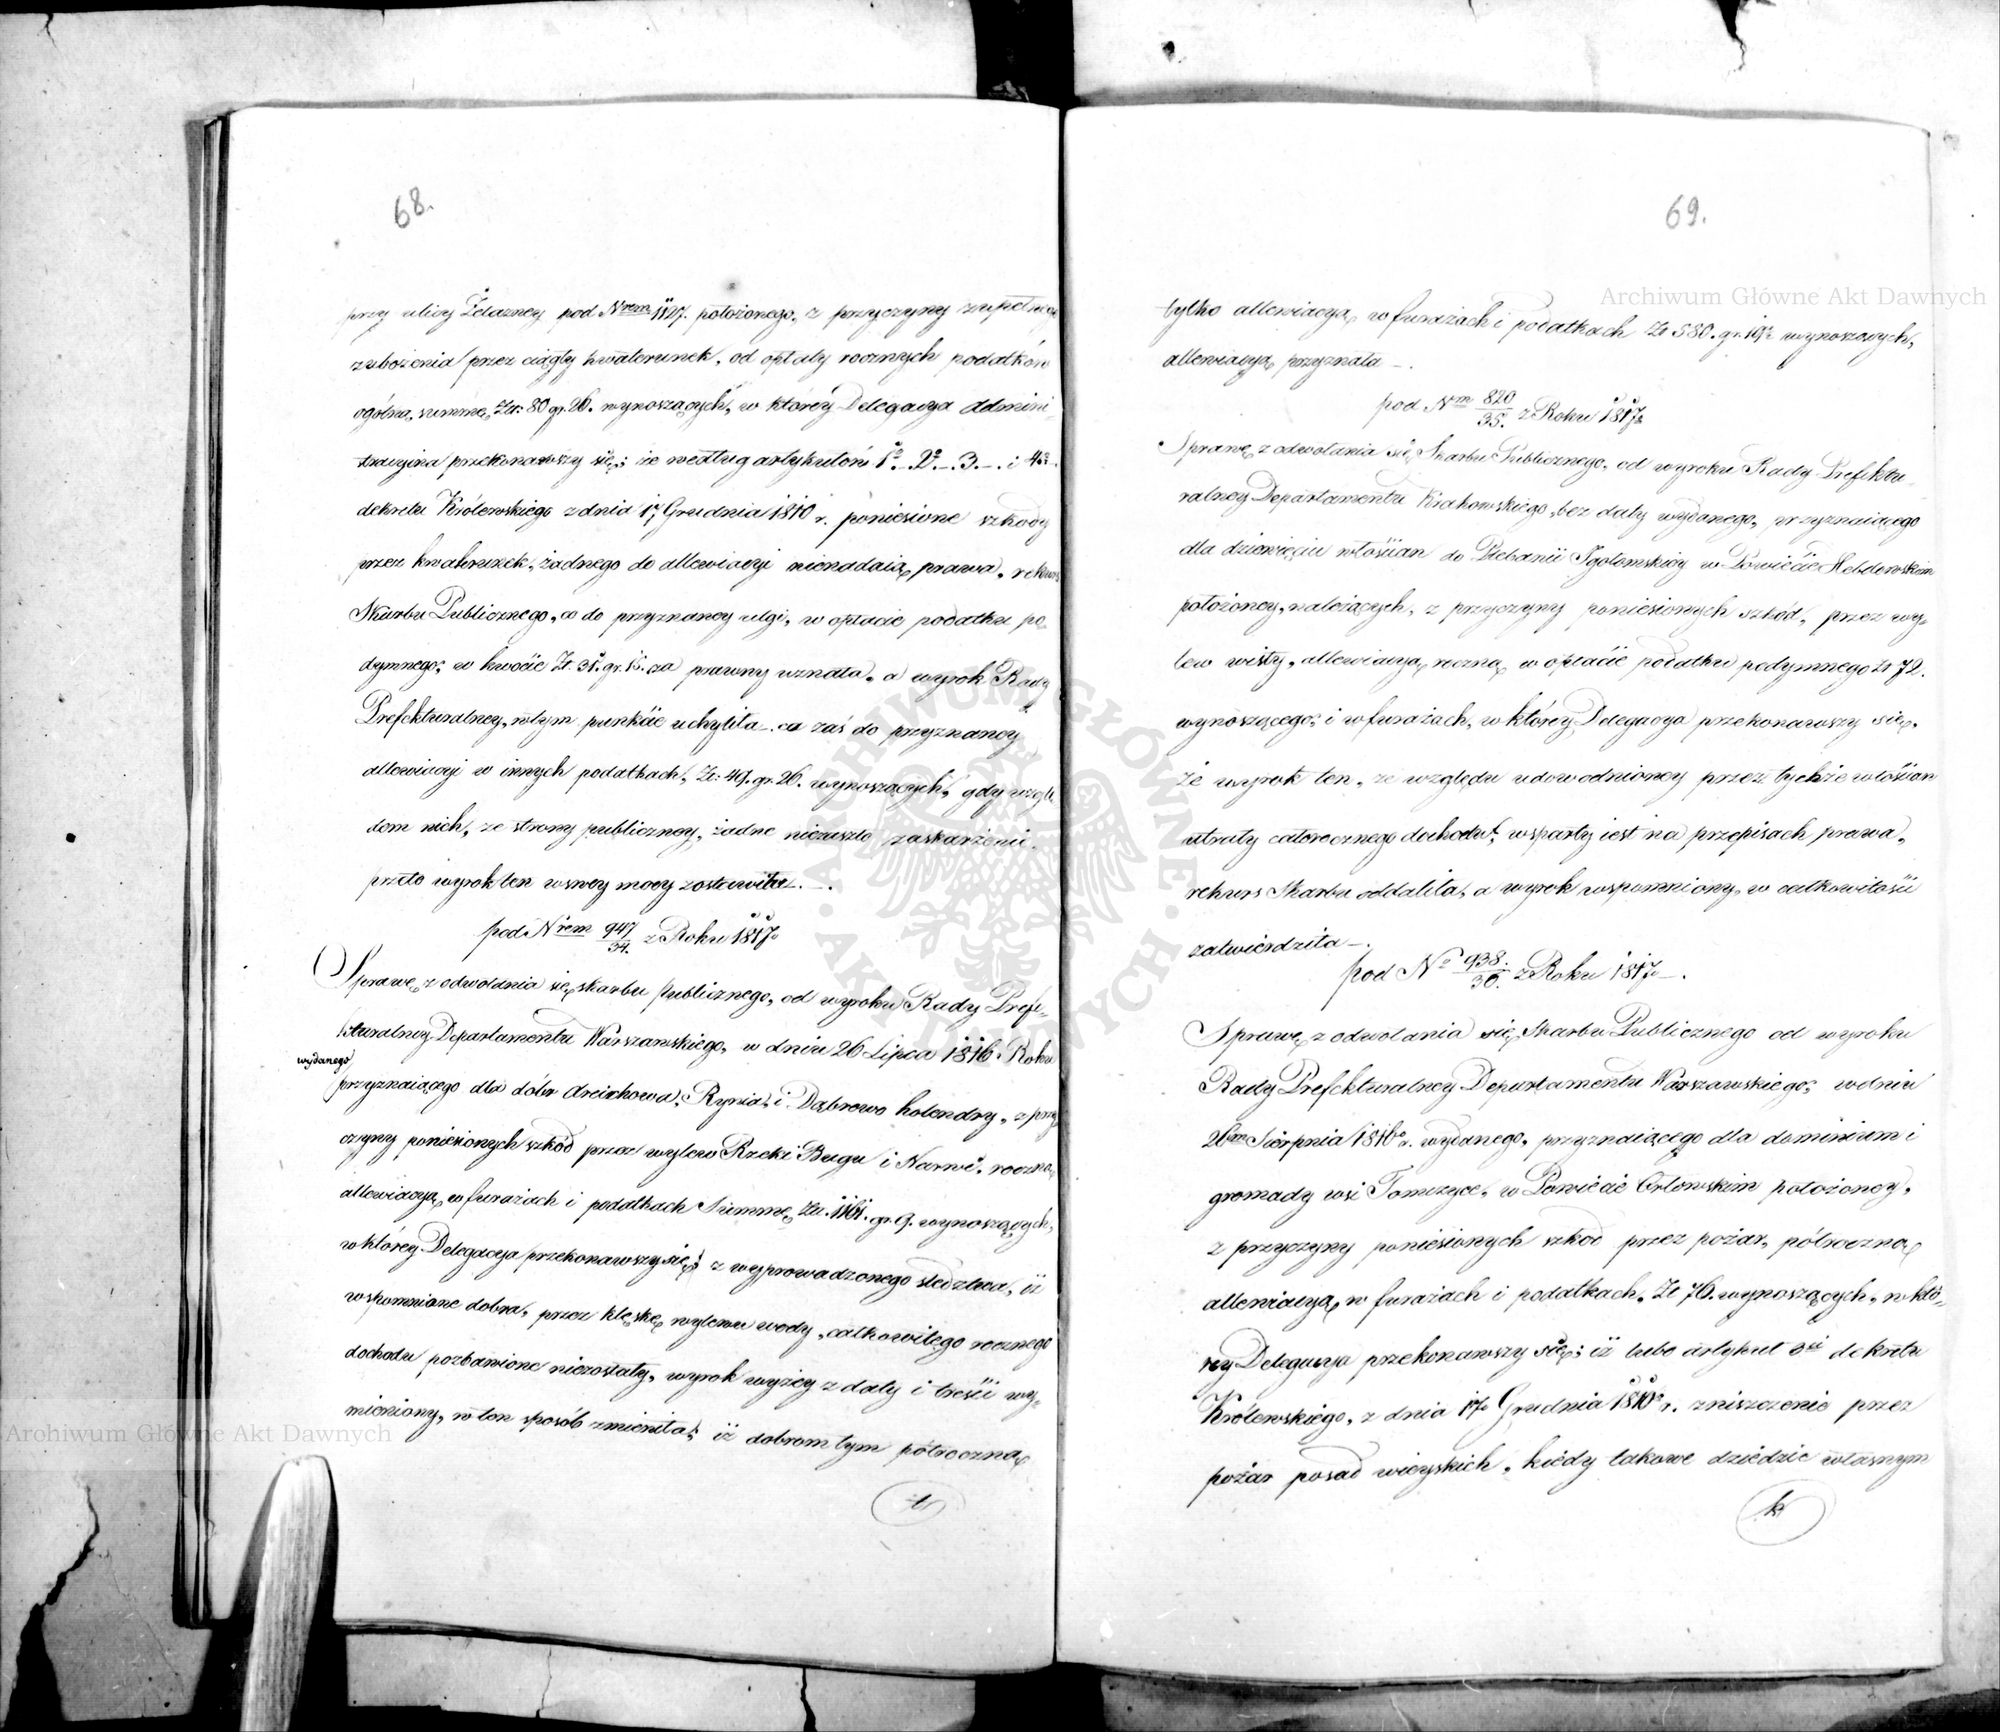 68.
przy ulicy Żelazney pod Nrem 1127. położonego, z przyczyny zupełnego
zubożenia przez ciągły kwaterunek, od opłaty rocznych podatków
ogólną summę Złr: 80 gr. 26. wynoszących, w którey Delegacya Admini-
stracyina przekonawszy się, że według artykułów 1o. 2o. 3. i 4o.
dekretu Królewskiego z dnia 17 Grudnia 1810 r. poniesione szkody
przez kwaterunek, żadnego do allewiacyi nienadaią prawa, rekurs
Skarbu Publicznego, co do przyznaney ulgi, w opłacie podatku po-
dymnego, w kwocie Zł. 31. gr. 15. za prawny uznała, a wyrok Rady
Prefekturalney, w tym punkcie uchyliła. co zaś do przyznaney
allewiacyi w innych podatkach, Zł: 49. gr. 26. wynoszących, gdy wzglę-
dem nich, ze strony publiczney, żadne niezaszło zaskarżenie,
przeto wyrok ten w swey mocy zostawiła.
pod Nrem 947/34. z Roku 1817.
Sprawę z odwołania się skarbu Publicznego, od wyroku Rady Prefe-
kturalney Departamentu Warszawskiego, w dniu 26 Lipca 1816. Roku
wydanego
przyznaiącego dla dóbr Arciechowa, Rynia, i Dąbrowo holendry, z przy-
czyny poniesionych szkód przez wylew Rzeki Bugu i Narwi, roczną
allewiacyą w furażach i podatkach Summę Złr. 1161. gr. 9. wynoszących,
w którey Delegacya przekonawszy się, z wyprowadzonego śledztwa, iż
wspomniane dobra, przez klęskę wylewu wody, całkowitego rocznego
dochodu pozbawione niezostały, wyrok wyżey z daty i treści wy-
mieniony, w ten sposób zmieniła, iż dobrom tym półroczną
69.
tylko allewiacyą w furażach i podatkach Zł 580. gr. 19½ wynoszących,
allewiacyą przyznała.
pod Nm 820/35. z Roku 1817.
Sprawę z odwołania się Skarbu Publicznego, od wyroku Rady Prefektu-
ralney Departamentu Krakowskiego, bez daty wydanego, przyznaiącego
dla dziewięciu włościan do Plebanii Igołomskiey w Powiecie Hebdowskim
położoney, należących, z przyczyny poniesionych szkód, przez wy-
lew wisły, allewiacyą roczną w opłacie podatku podymnego Zł 72.
wynoszącego, i w furażach, w którey Delegacya przekonawszy się,
że wyrok ten, ze względu udowodnioney przez tychże włościan
utraty całorocznego dochodu, wsparty iest na przepisach prawa,
rekurs Skarbu oddaliła, a wyrok wspomniony, w całkowitości
zatwierdziła.
pod No 938./36. z Roku 1817.
Sprawę z odwołania się Skarbu Publicznego od wyroku
Rady Prefekturalney Departamentu Warszawskiego, w dniu
26m Sierpnia 1816o r. wydanego, przyznaiącego dla dominium i
gromady wsi Tomczyce, w Powiecie Orłowskim położoney,
z przyczyny poniesionych szkod przez pożar, półroczną
allewiacyą, w furażach i podatkach, Zł 76. wynoszących, w któ-
rey Delegacya przekonawszy się, iż lubo artykuł 3ci dekretu
Królewskiego, z dnia 17o Grudnia 1810o r. zniszczenie przez
pożar posad wieyskich, kiedy takowe dziedzic własnym
k
Archiwum Główne Akt Dawnych
Archiwum Główne Akt Dawnych
ARCHIWUM GŁÓWNE AKT DAWNYCH